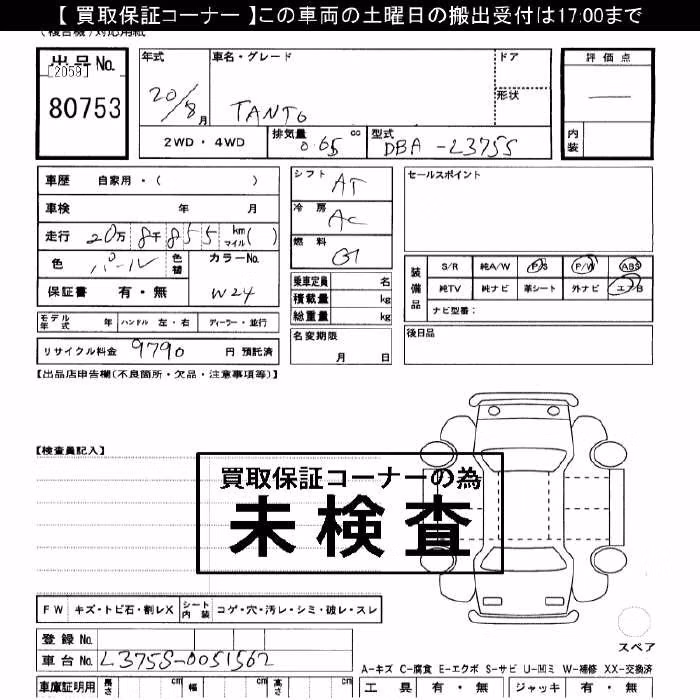 【 買取保証コーナー 】この車両の土曜日の搬出受付は17:00まで
(複合機)対応用紙
出品No.
[2059]
80753
年式
20/8月
車名・グレード
TANTO
ドア
形状
2WD・4WD
排気量
0.65 cc
型式
DBA-L375S
評価点
―
内装
車歴 自家用・( )
車検 年 月
走行 20万8千855 km マイル( )
色 パール 色替
カラーNo.
W24
保証書 有・無
モデル年式 年 ハンドル 左・右 ディーラー・並行
リサイクル料金 9790 円 預託済
シフト AT
冷房 AC
燃料 G
乗車定員 名
積載量 kg
総重量 kg
名変期限
月 日
セールスポイント
装備品
S/R 純A/W P/S P/W ABS
純TV 純ナビ 革シート 外ナビ エアB
ナビ型番:
後日品
【出品店申告欄(不良箇所・欠品・注意事項等)】
【検査員記入】
買取保証コーナーの為
未検査
FW キズ・トビ石・割レX シート内装 コゲ・穴・汚レ・シミ・破レ・スレ
登録No.
車台No. L375S-0051562
車庫証明用 長さ cm 幅 cm 高さ cm
スペア
A-キズ C-腐食 E-エクボ S-サビ U-凹ミ W-補修 XX-交換済
工具 有・無 ジャッキ 有・無